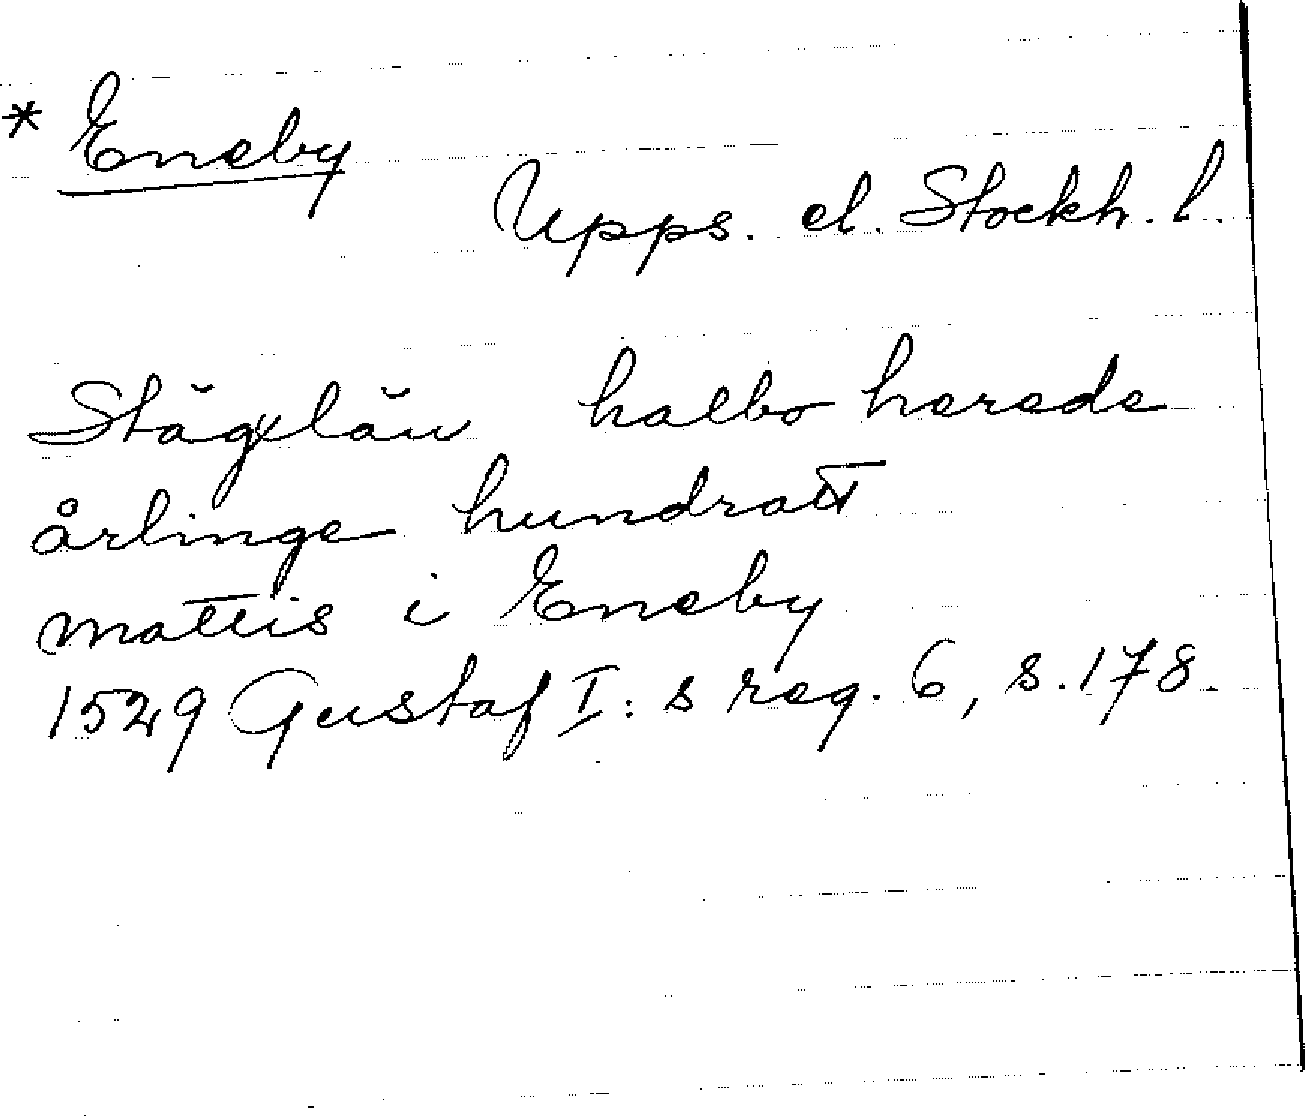 * Eneby
Upps. el. Stockh. l.
Stägxlän halbo herede
årlinge hundratt
mattis i Eneby
1529 Gustaf I:s reg. 6, s. 178.